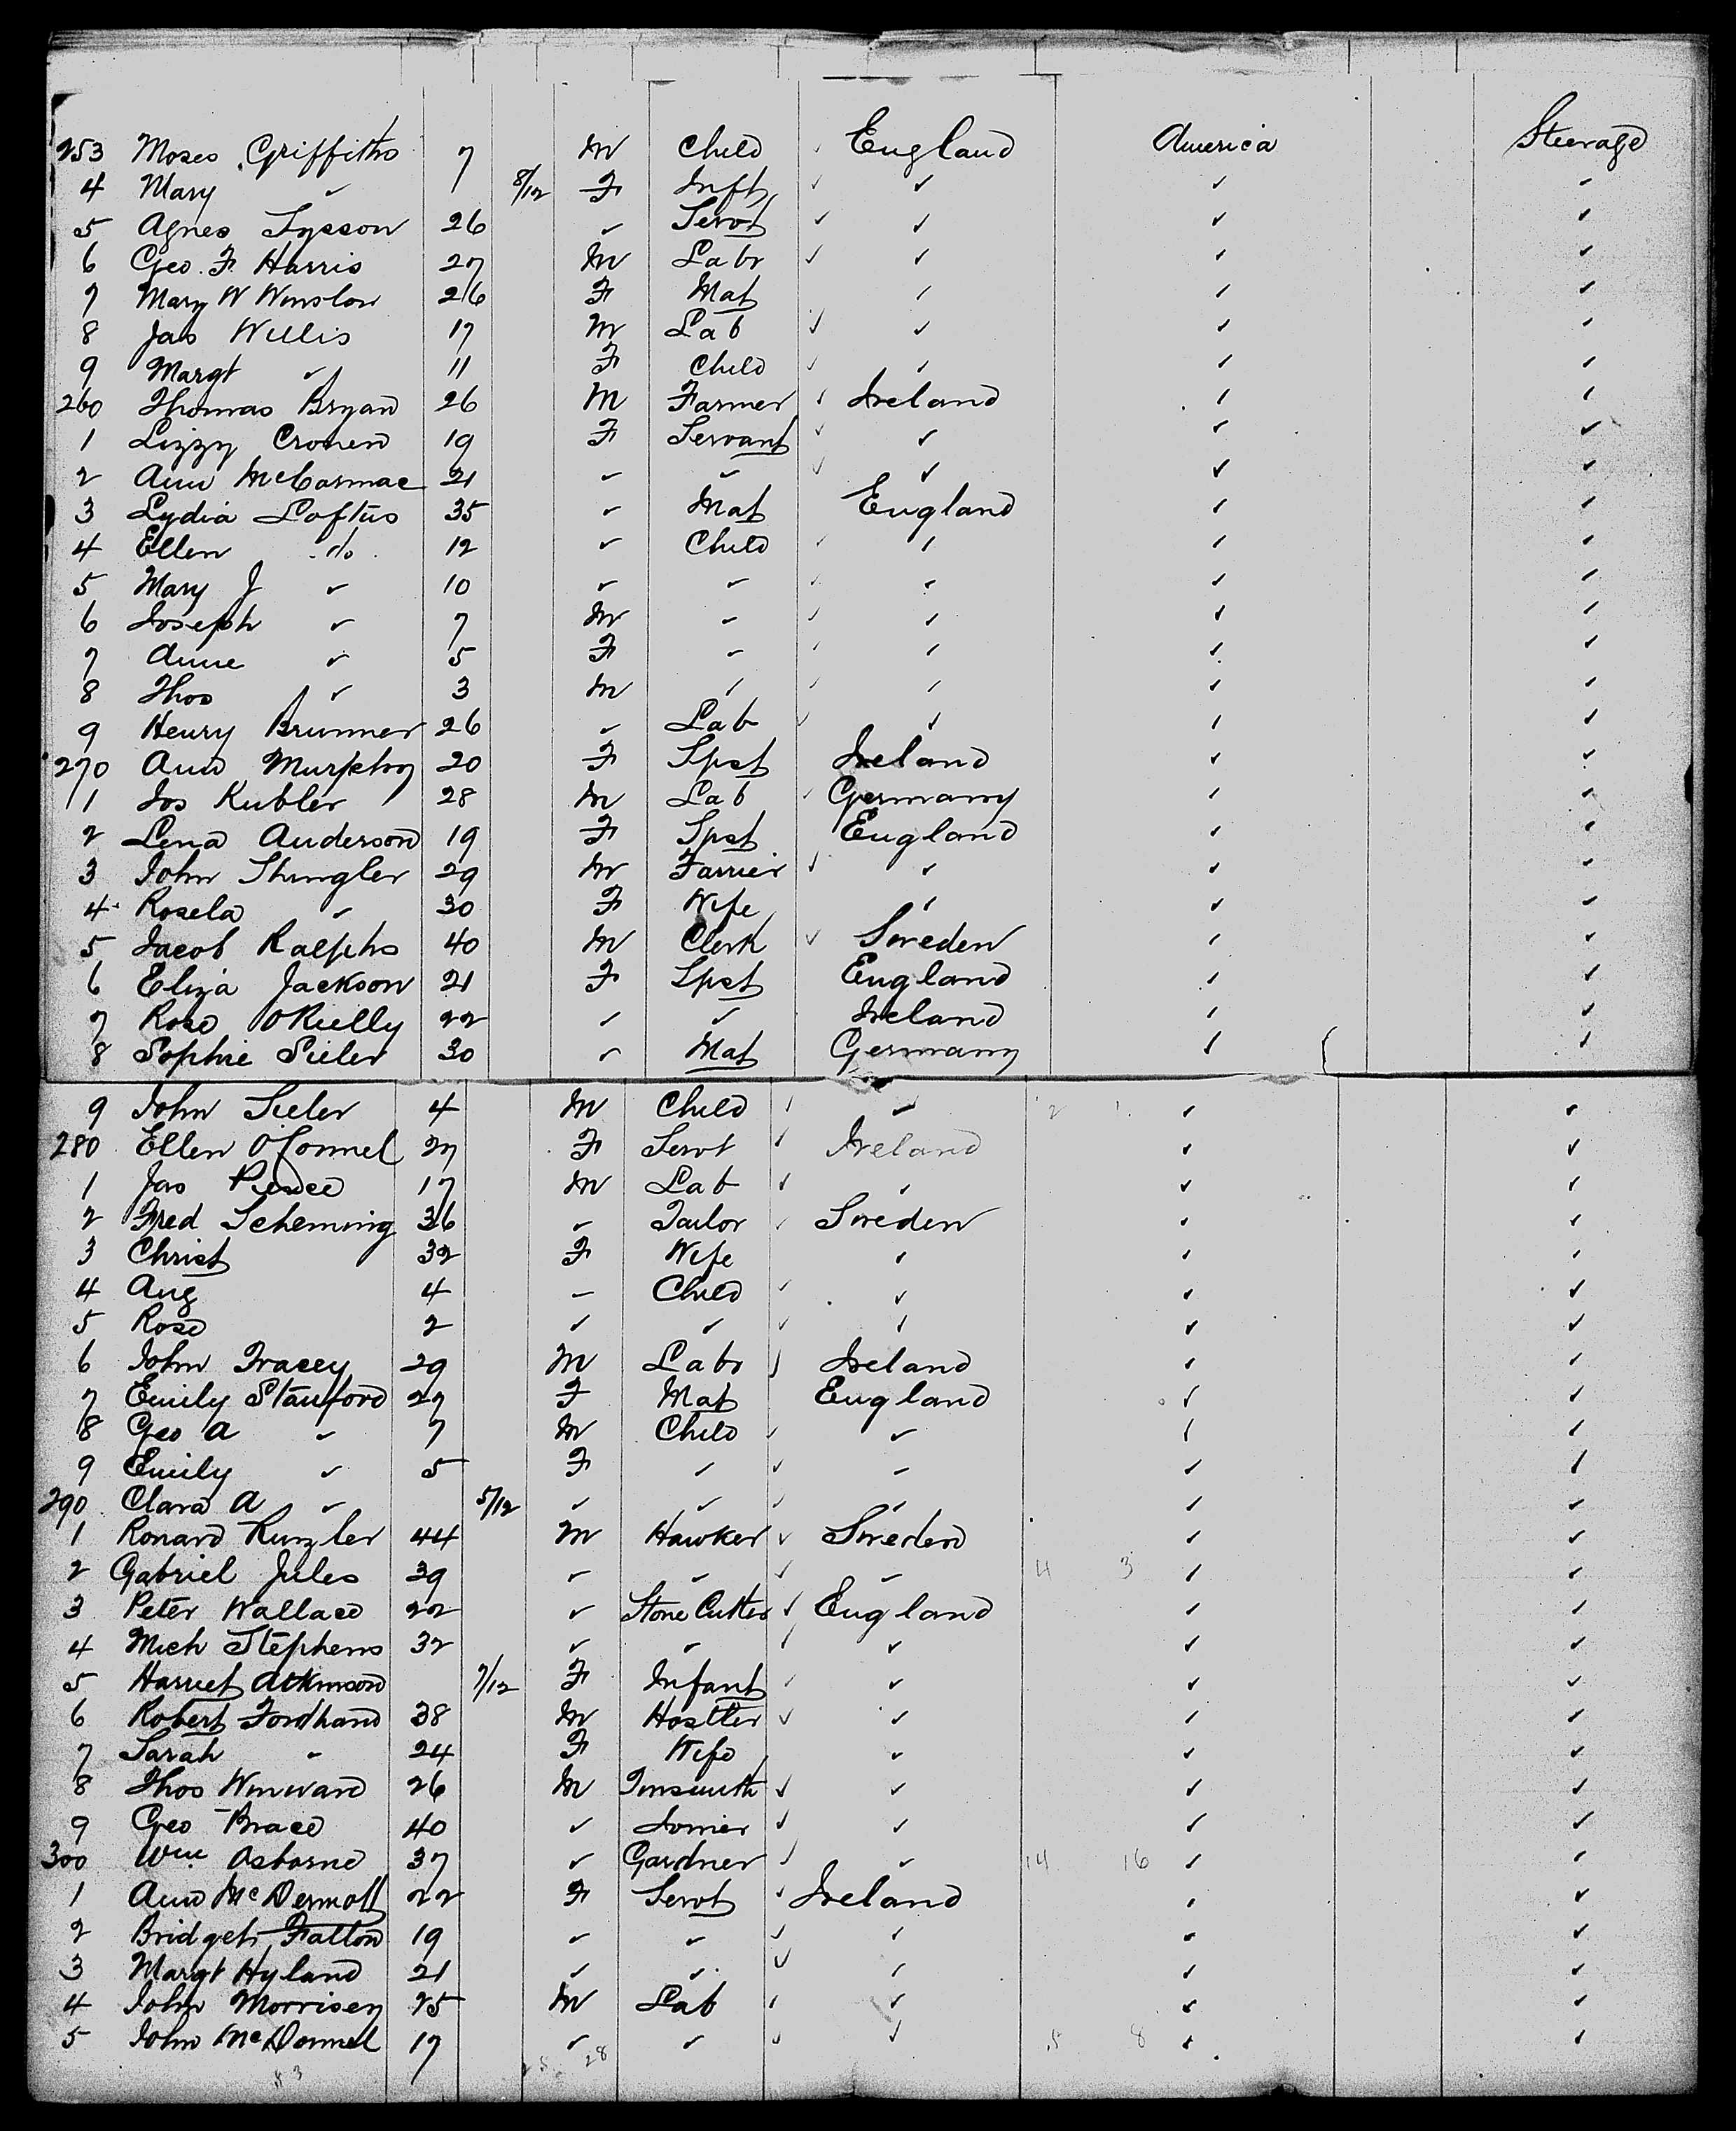 253 Moses Griffiths 7 M Child ✓ England America Steerage
4 Mary ✓ 8/12 F Inft ✓ ✓ ✓ ✓
5 Agnes Tysson 26 ✓ Servt ✓ ✓ ✓ ✓
6 Geo. F Harris 27 M Labr ✓ ✓ ✓ ✓
7 Mary W Winslow 26 F Mat ✓ ✓ ✓
8 Jas Willis 17 M Lab ✓ ✓ ✓ ✓
9 Margt ✓ 11 F Child ✓ ✓ ✓ ✓
260 Thomas Bryan 26 M Farmer ✓ Ireland ✓ ✓
1 Lizzy Cronen 19 F Servant ✓ ✓ ✓ ✓
2 Ann McCormac 21 ✓ ✓ ✓ ✓ ✓ ✓
3 Lydia Loftus 35 ✓ Mat England ✓ ✓
4 Ellen do 12 ✓ Child ✓ ✓ ✓ ✓
5 Mary J ✓ 10 ✓ ✓ ✓ ✓ ✓ ✓
6 Joseph ✓ 7 M ✓ ✓ ✓ ✓ ✓
7 Anne ✓ 5 F ✓ ✓ ✓ ✓ ✓
8 Thos ✓ 3 M ✓ ✓ ✓ ✓ ✓
9 Henry Brunner 26 ✓ Lab ✓ ✓ ✓ ✓
270 Ann Murphy 20 F Spst Ireland ✓ ✓
1 Jos Kubler 28 M Lab ✓ Germany ✓ ✓
2 Lena Anderson 19 F Spst England ✓ ✓
3 John Shingler 29 M Farrier ✓ ✓ ✓ ✓
4 Rosela ✓ 30 F Wife ✓ ✓ ✓
5 Jacob Ralphs 40 M Clerk ✓ Sweden ✓ ✓
6 Eliza Jackson 21 F Spst England ✓ ✓
7 Rose O'Rielly 22 ✓ ✓ Ireland ✓ ✓
8 Sophie Sieler 30 ✓ Mat Germany ✓ ✓
9 John Sieler 4 M Child ✓ ✓ 2 1 ✓ ✓
280 Ellen O'Connel 27 F Servt ✓ Ireland ✓ ✓
1 Jas 17 M Lab ✓ ✓ ✓ ✓
2 Fred Scheming 36 ✓ Tailor ✓ Sweden ✓ ✓
3 Christ 32 F Wife ✓ ✓ ✓
4 Aug 4 ✓ Child ✓ ✓ ✓ ✓
5 Rose 2 ✓ ✓ ✓ ✓ ✓ ✓
6 John Tracey 29 M Labr ✓ Ireland ✓ ✓
7 Emily Stanford 27 F Mat England ✓ ✓
8 Geo A ✓ 7 M Child ✓ ✓ ✓ ✓
9 Emily ✓ 5 F ✓ ✓ ✓ ✓ ✓
290 Clara A ✓ 5/12 ✓ ✓ ✓ ✓ ✓ ✓
1 Ronard Kunzler 44 M Hawker ✓ Sweden ✓ ✓
2 Gabriel Jules 39 ✓ ✓ ✓ ✓ 4 3 ✓ ✓
3 Peter Wallace 22 ✓ Stone Cutter ✓ England ✓ ✓
4 Mich Stephens 32 ✓ ✓ ✓ ✓ ✓ ✓
5 Harriet Atkinson 7/12 F Infant ✓ ✓ ✓ ✓
6 Robert Fordham 38 M Hostler ✓ ✓ ✓ ✓
7 Sarah ✓ 24 F Wife ✓ ✓ ✓
8 Thos Winward 26 M Tinsmith ✓ ✓ ✓ ✓
9 Geo Brace 40 ✓ Joiner ✓ ✓ ✓ ✓
300 Wm Osborne 37 ✓ Gardner ✓ ✓ 14 16 ✓ ✓
1 Ann McDermott 22 F Servt ✓ Ireland ✓ ✓
2 Bridget Fallon 19 ✓ ✓ ✓ ✓ ✓ ✓
3 Margt Hyland 21 ✓ ✓ ✓ ✓ ✓ ✓
4 John Morrisey 25 M Lab ✓ ✓ ✓ ✓
5 John McDonnel 17 ✓ ✓ ✓ ✓ 5 8 ✓ ✓
25 28